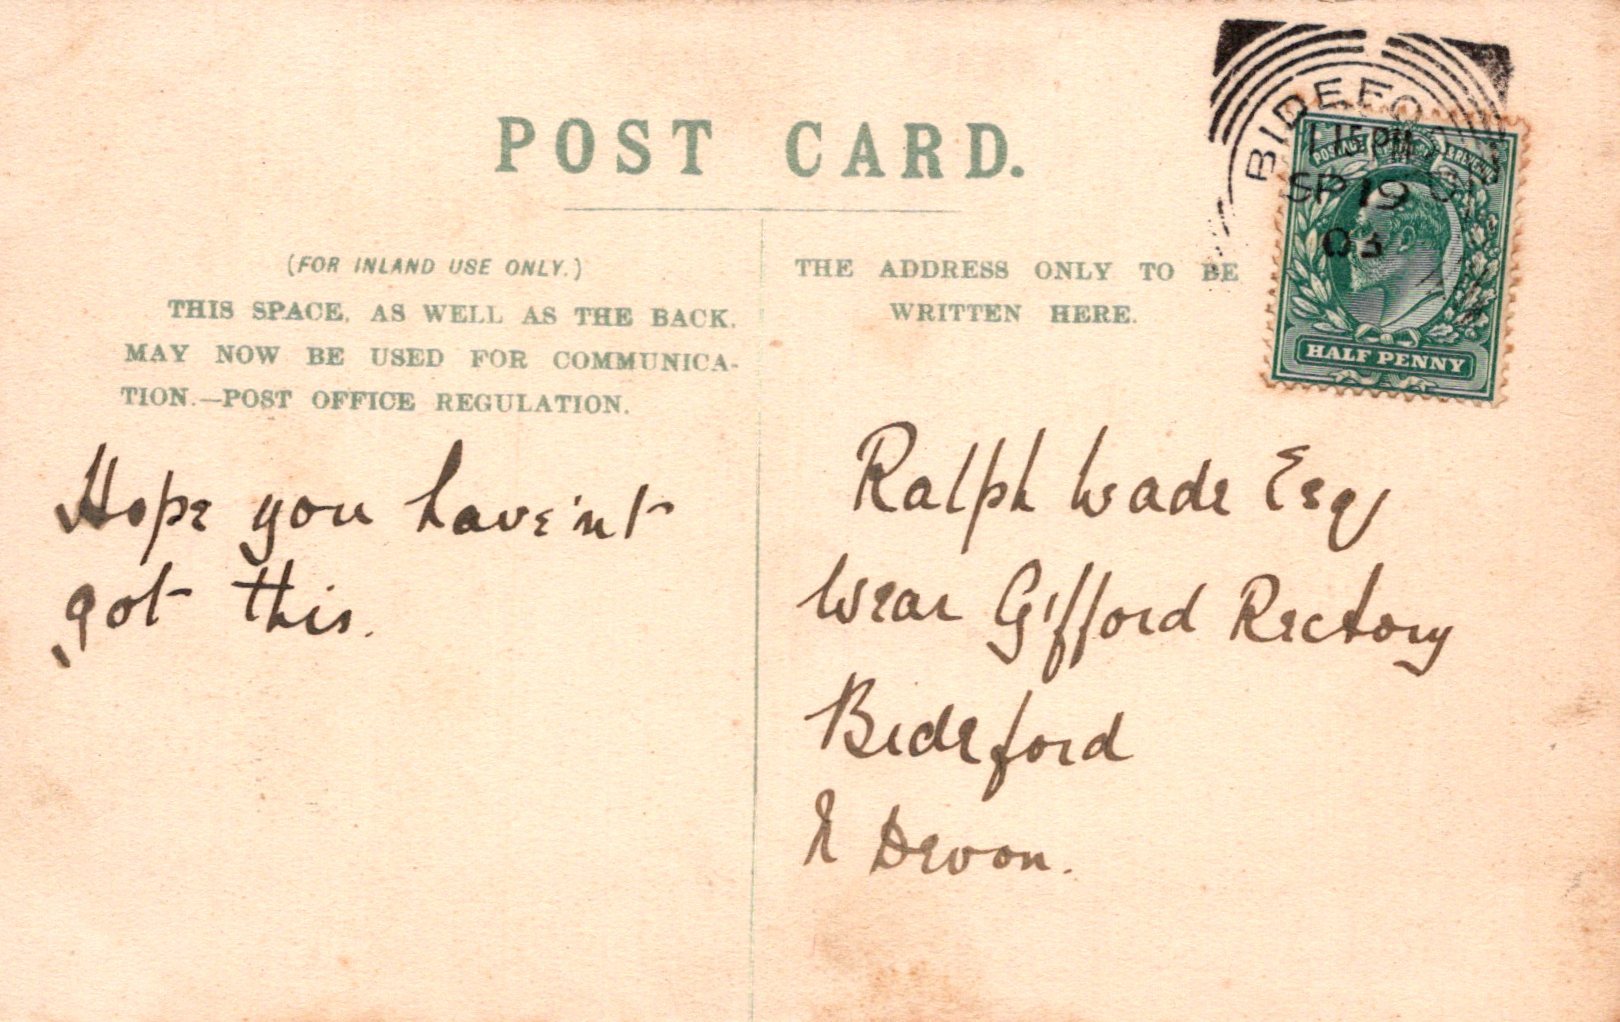 POST CARD.
(FOR INLAND USE ONLY.)
THIS SPACE, AS WELL AS THE BACK,
MAY NOW BE USED FOR COMMUNICA-
TION.—POST OFFICE REGULATION.
THE ADDRESS ONLY TO BE
WRITTEN HERE.
BIDEFO
1 15PM
SP 19
03
POSTAGE & REVENUE
HALF PENNY
Hope you have'nt
got this.
Ralph Wade Esq
Wear Gifford Rectory
Bideford
N Devon.